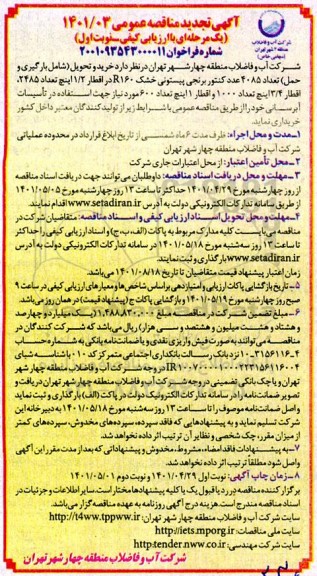 آگهی تجدید مناقصه عمومی ۱۴۰۱/۰۳
(یک مرحله‌ای با ارزیابی کیفی-نوبت اول)
شماره فراخوان ۲۰۰۱۰۹۳۵۴۳۰۰۰۰۱۱
شرکت آب و فاضلاب
منطقه ۴ شهر تهران
(سهامی خاص)
شرکت آب و فاضلاب منطقه چهار شهر تهران در نظر دارد خرید و تحویل (شامل بارگیری و
حمل) تعداد ۴۰۸۵ عدد کنتور برنجی پیستونی خشک R160 در اقطار ۱/۲ اینچ تعداد ۲۴۸۵،
اقطار ۳/۴ اینچ تعداد ۱۰۰۰ و اقطار ۱ اینچ تعداد ۶۰۰ مورد نیاز جهت استفاده در تأسیسات
آبرسانی خود را از طریق مناقصه عمومی با شرایط زیر از تولیدکنندگان معتبر داخل کشور
خریداری نماید.
۱-مدت و محل اجراء: ظرف مدت ۶ ماه شمسی از تاریخ ابلاغ قرارداد در محدوده عملیاتی
شرکت آب و فاضلاب منطقه چهار شهر تهران
۲-محل تأمین اعتبار: از محل اعتبارات جاری شرکت
۳-مهلت و محل دریافت اسناد مناقصه: داوطلبان می‌توانند جهت دریافت اسناد مناقصه
از روز چهارشنبه مورخ ۱۴۰۱/۰۴/۲۹ حداکثر تا ساعت ۱۳ روز چهارشنبه مورخ ۱۴۰۱/۰۵/۰۵
از طریق سامانه تدارکات الکترونیکی دولت به آدرس www.setadiran.ir اقدام نمایند.
۴-مهلت و محل تحویل اسناد ارزیابی کیفی و اسناد مناقصه: متقاضیان شرکت در
مناقصه می‌بایست کلیه مدارک مربوط به پاکات (الف، ب، ج) و اسناد ارزیابی کیفی را حداکثر
تا ساعت ۱۳ روز سه‌شنبه مورخ ۱۴۰۱/۰۵/۱۸ در سامانه تدارکات الکترونیکی دولت به آدرس
www.setadiran.ir بارگذاری و ثبت نمایند.
زمان اعتبار پیشنهاد قیمت متقاضیان تا تاریخ ۱۴۰۱/۰۸/۱۸ می‌باشد.
۵-تاریخ بازگشایی پاکات ارزیابی و امتیازدهی براساس شاخص‌ها و معیارهای ارزیابی کیفی در ساعت ۹
صبح روز چهارشنبه مورخ ۱۴۰۱/۰۵/۱۹ و بازگشایی پاکات ج (پیشنهاد قیمت) در همان روز می‌باشد.
۶-مبلغ تضمین شرکت در مناقصه: مبلغ ۱.۴۸۸.۸۳۰.۰۰۰ (یک میلیارد و چهارصد
و هشتاد و هشت میلیون و هشتصد و سی هزار) ریال می‌باشد که شرکت کنندگان در
مناقصه می‌توانند به صورت فیش واریزی نقدی و یا ضمانت‌نامه بانکی به شماره حساب
در وجه شرکت آب و فاضلاب منطقه چهار شهر
تهران و یا چک بانکی تضمینی در وجه شرکت آب و فاضلاب منطقه چهار شهر تهران دریافت و
تصویر ضمانت‌نامه را در سامانه تدارکات الکترونیک دولت در پاکت (الف) بارگذاری و ثبت نماید
و اصل ضمانت‌نامه موصوف را تا ساعت ۱۳ روز سه‌شنبه مورخ ۱۴۰۱/۰۵/۱۸ به دبیرخانه این
شرکت تسلیم نماید و به پیشنهادهایی که فاقد سپرده، سپرده‌های مخدوش، سپرده‌های کمتر
از میزان مقرر، چک شخصی و نظایر آن ترتیب اثر داده نخواهد شد.
۷-به پیشنهادات فاقد امضاء، مشروط، مخدوش و پیشنهاداتی که بعد از مدت مقرر این آگهی
واصل شود مطلقاً ترتیب اثر داده نخواهد شد.
۸-زمان چاپ آگهی: نوبت اول ۱۴۰۱/۰۴/۲۹ و نوبت دوم ۱۴۰۱/۰۵/۰۱
برگزار کننده مناقصه در رد یا قبول یک یا کلیه پیشنهادها مختار است، سایر اطلاعات و جزئیات در
اسناد مناقصه مندرج است. هزینه درج آگهی روزنامه به عهده مناقصه‌گزار می‌باشد.
سایت شرکت آب و فاضلاب منطقه چهار شهر تهران: http://t4ww.tppww.ir
سایت ملی مناقصات: http://iets.mporg.ir
سایت شرکت مهندسی: http:tender.nww.co.ir
شرکت آب و فاضلاب منطقه چهار شهر تهران